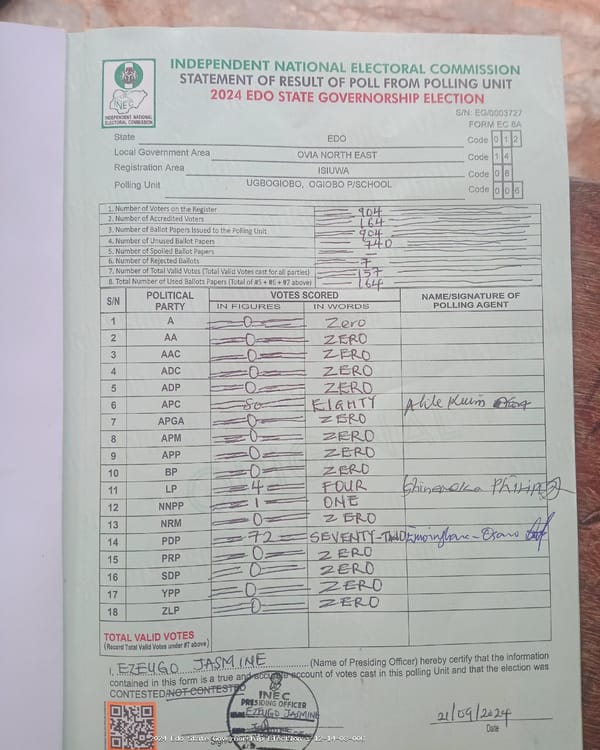 INDEPENDENT NATIONAL ELECTORAL COMMISSION
STATEMENT OF RESULT OF POLL FROM POLLING UNIT
2024 EDO STATE GOVERNORSHIP ELECTION
INEC
INDEPENDENT NATIONAL
ELECTORAL COMMISSION
S/N: EG/0003727
FORM EC 8A
State EDO Code 0 1 2
Local Government Area OVIA NORTH EAST Code 1 4
Registration Area ISIUWA Code 0 8
Polling Unit UGBOGIOBO, OGIOBO P/SCHOOL Code 0 0 6
1. Number of Voters on the Register 904
2. Number of Accredited Voters 164
3. Number of Ballot Papers Issued to the Polling Unit 904
4. Number of Unused Ballot Papers 740
5. Number of Spoiled Ballot Papers —
6. Number of Rejected Ballots 7
7. Number of Total Valid Votes (Total Valid Votes cast for all parties) 157
8. Total Number of Used Ballots Papers (Total of #5 + #6 + #7 above) 164
S/N POLITICAL PARTY VOTES SCORED NAME/SIGNATURE OF POLLING AGENT
IN FIGURES IN WORDS
1 A 0 Zero
2 AA 0 ZERO
3 AAC 0 ZERO
4 ADC 0 ZERO
5 ADP 0 ZERO
6 APC 80 EIGHTY
7 APGA 0 ZERO
8 APM 0 ZERO
9 APP 0 ZERO
10 BP 0 ZERO
11 LP 4 FOUR
12 NNPP 1 ONE
13 NRM 0 ZERO
14 PDP 72 SEVENTY-TWO
15 PRP 0 ZERO
16 SDP 0 ZERO
17 YPP 0 ZERO
18 ZLP 0 ZERO
TOTAL VALID VOTES
(Record Total Valid Votes under #7 above)
I, EZEUGO JASMINE (Name of Presiding Officer) hereby certify that the information
contained in this form is a true and accurate account of votes cast in this polling Unit and that the election was
CONTESTED/NOT CONTESTED
INEC
PRESIDING OFFICER
EZEUGO JASMINE
21/09/2024
Date
2024 Edo State Governorship Election